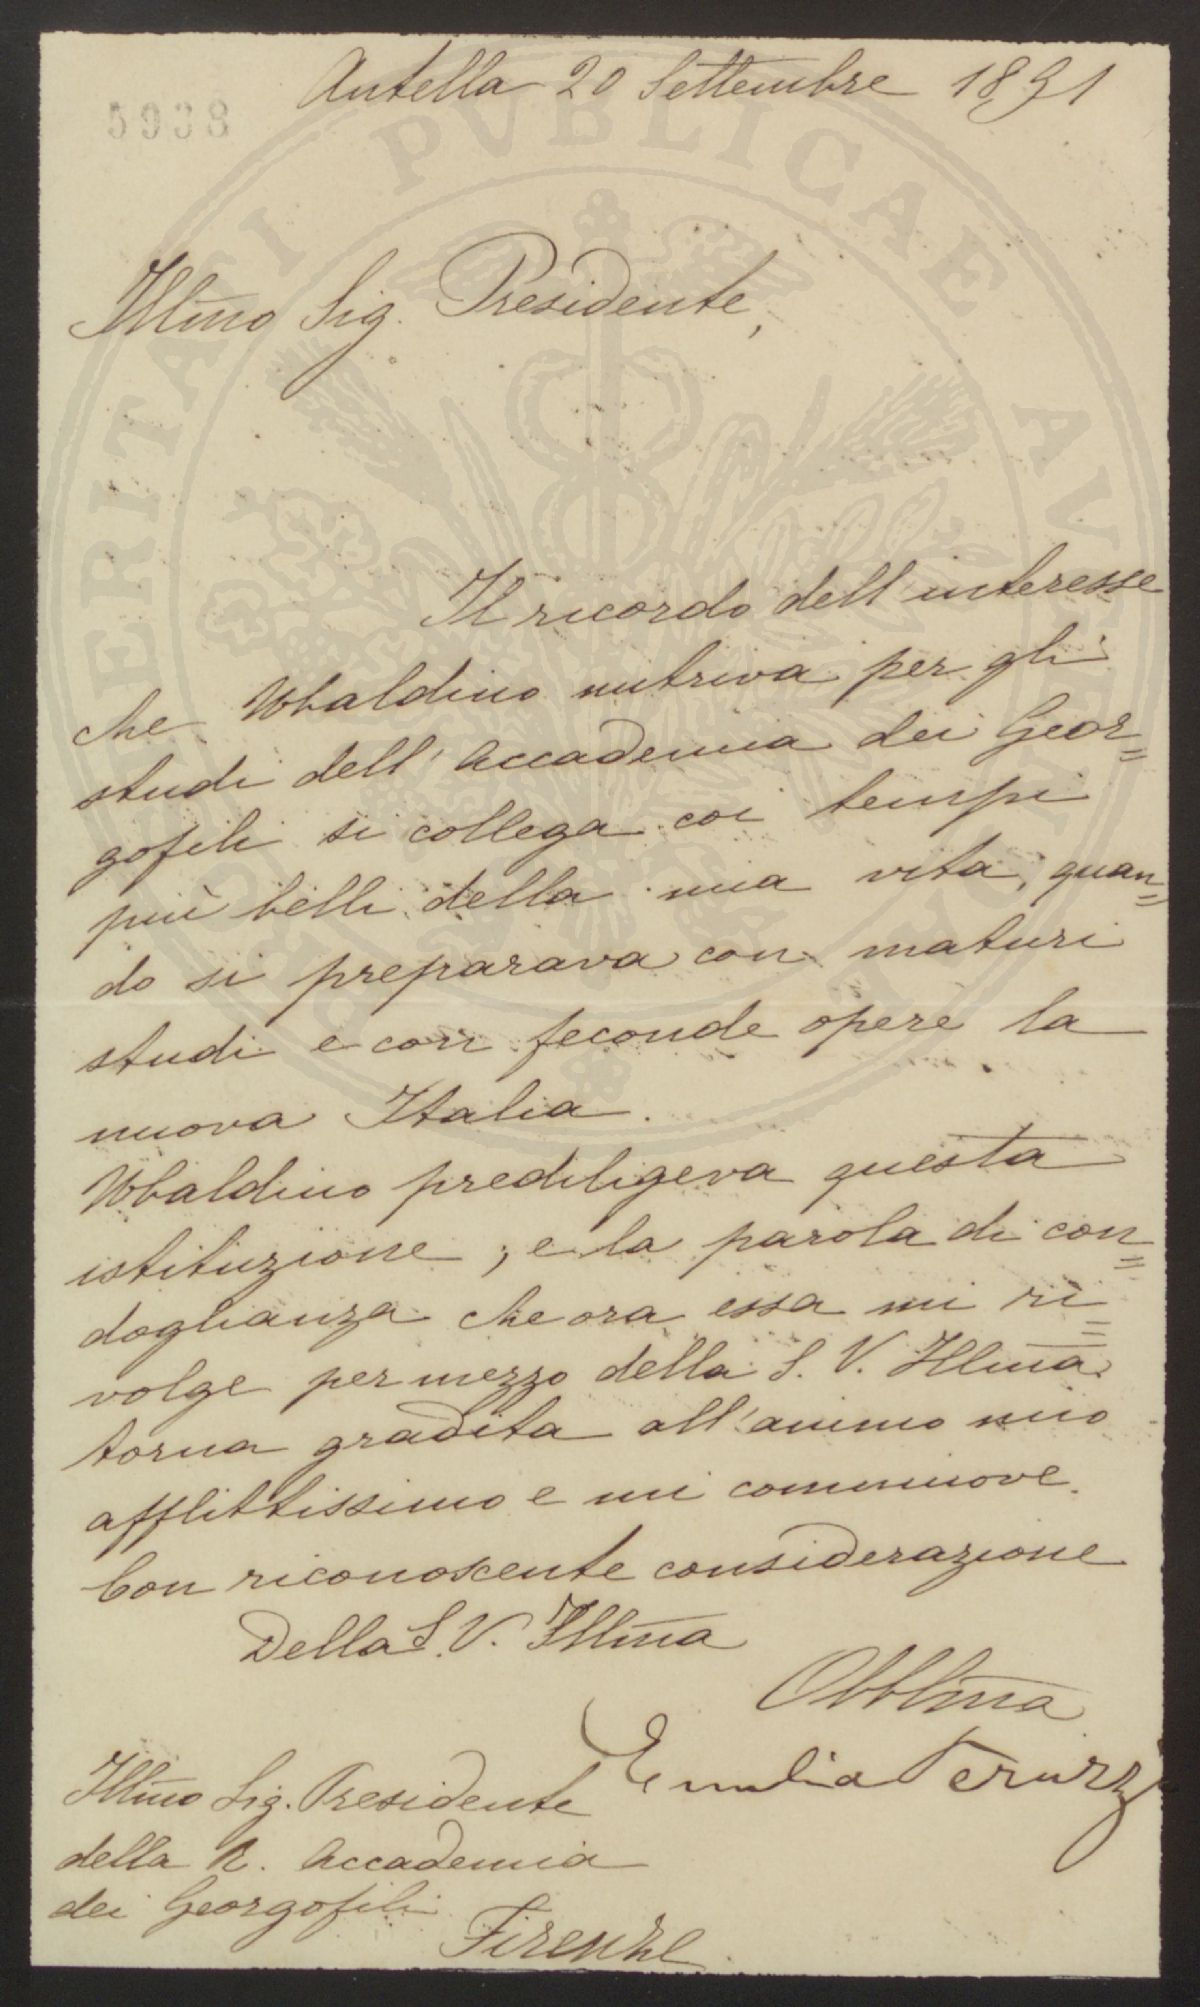 5938
Antella 20 Settembre 1891
PROSPERITATI PVBLICAE AVGENDAE
Illmo Sig. Presidente,
Il ricordo dell'interesse
che Ubaldino nutriva per gli
studi dell'Accademia dei Geor=
gofili si collega coi tempi
più belli della mia vita, quan=
do si preparava con maturi
studi e con feconde opere la
nuova Italia.
Ubaldino prediligeva questa
istituzione; e la parola di con=
doglianza che ora essa mi ri=
volge per mezzo della S. V. Illma
torna gradita all'animo mio
afflittissimo e mi commuove.
Con riconoscente considerazione
Della S. V. Illma
Obblma
Emilia Peruzzi
Illmo Sig. Presidente
della R. Accademia
dei Georgofili
Firenze